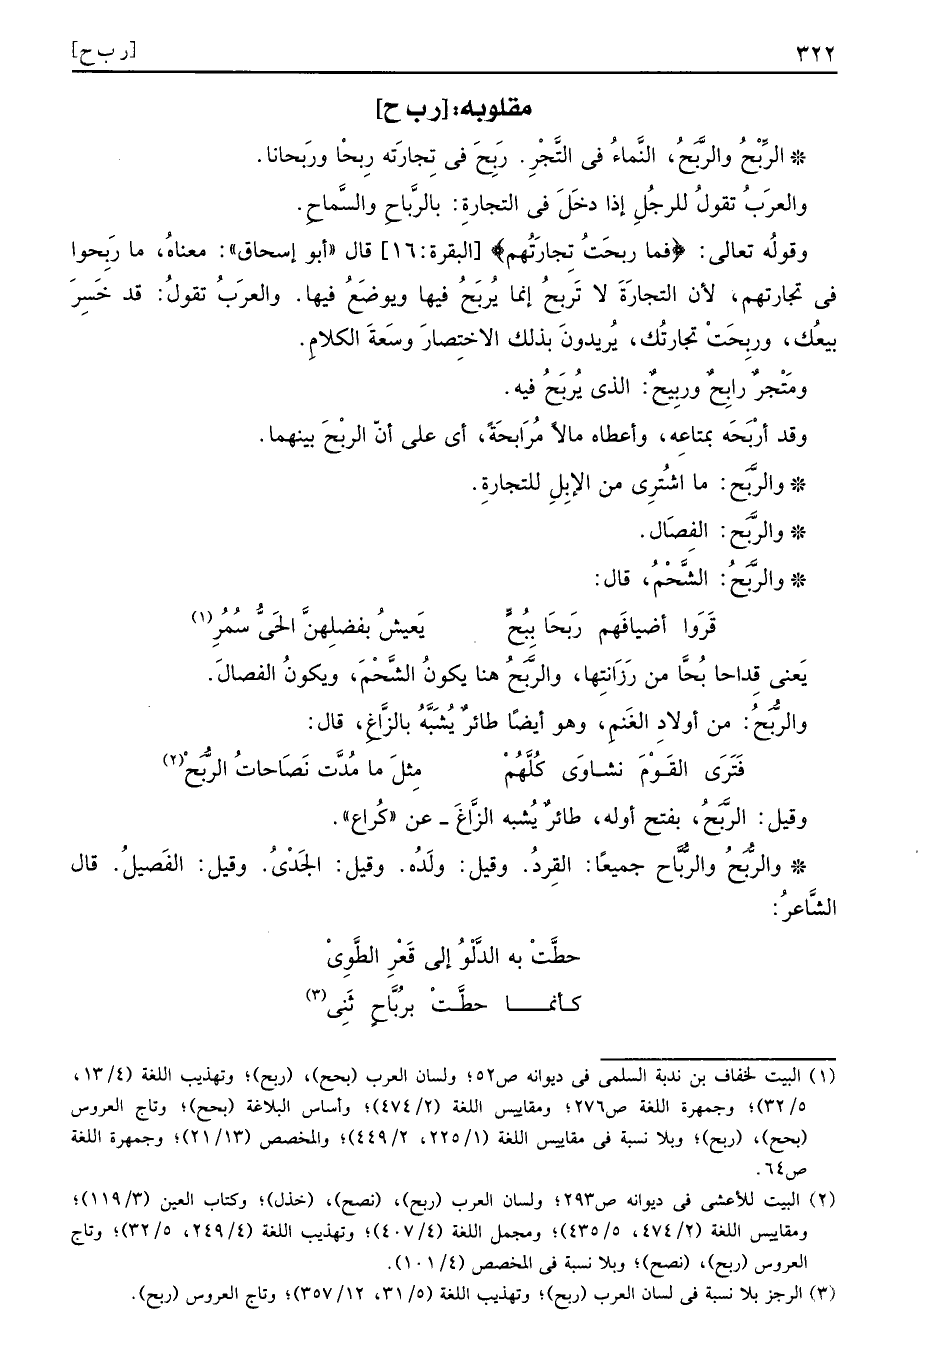 ٣٢٢
[ر ب ح]
مقلوبه: [ر ب ح]
* الرِّبْحُ والرَّبَحُ، النَّماءُ فى التَّجْرِ. رَبِحَ فى تِجارَتِه رِبحْا ورَبَحانا.
والعرَبُ تقولُ للرجُلِ إذا دخَلَ فى التجارةِ: بالرَّباحِ والسَّماحِ.
وقولُه تعالى: ﴿فما ربحَتْ تجارَتُهم﴾ [البقرة: ١٦] قال «أبو إسحاق»: معناهُ، ما رَبِحوا
فى تجارتِهم، لأن التجارَةَ لا تَربحُ إنما يُربَحُ فيها ويوضَعُ فيها. والعرَبُ تقولُ: قد خَسِرَ
بيعُك، وربِحَتْ تجارتُك، يُريدونَ بذلك الاختِصارَ وسَعةَ الكلامِ.
ومَتْجرٌ رابِحٌ وربِيحٌ: الذى يُربَحُ فيه.
وقد أرْبَحَه بمتاعِه، وأعطاه مالاً مُرَابحةً، أى على أنّ الربْحَ بينهما.
* والرَّبَح: ما اشتُرِى من الإبِلِ للتجارةِ.
* والرَّبَح: الفِصَال.
* والرَّبَحُ: الشَّحْمُ، قال:
قَرَوا أضيافَهم رَبَحا بِبُحٍّ يَعيشُ بفضلِهنَّ الحَىُّ سُمُرِ(١)
يَعنى قِداحا بُحَّا من رَزَانتِها، والرَّبَحُ هنا يكونُ الشَّحْمَ، ويكونُ الفصالَ.
والرُّبَحُ: من أولادِ الغَنمِ، وهو أيضًا طائرٌ يُشبَّهُ بالزَّاغِ، قال:
فَتَرَى القـوْمَ نشـاوَى كُلَّهُمْ مِثلَ ما مُدَّت نَصَاحاتُ الرُّبَحْ(٢)
وقيل: الرَّبَحُ، بفتح أوله، طائرٌ يُشبه الزَّاغَ ـ عن «كُراع».
* والرُّبَحُ والرُّبَّاح جميعًا: القِردُ. وقيل: ولَدُه. وقيل: الجَدْىُ. وقيل: الفَصيلُ. قال
الشَّاعرُ:
حطَّتْ به الدَّلْوُ إلى قَعْرِ الطَّوِىْ
كـأنمـــا حطَّـتْ برُبَّاحٍ ثَنِى(٣)
(١) البيت لخفاف بن ندبة السلمى فى ديوانه ص٥٢؛ ولسان العرب (بحح)، (ربح)؛ وتهذيب اللغة (١٣/٤،
٣٢/٥)؛ وجمهرة اللغة ص٢٧٦؛ ومقاييس اللغة (٤٧٤/٢)؛ وأساس البلاغة (بحح)؛ وتاج العروس
(بحح)، (ربح)؛ وبلا نسبة فى مقاييس اللغة (٢٢٥/١، ٤٤٩/٢)؛ والمخصص (٢١/١٣)؛ وجمهرة اللغة
ص٦٤.
(٢) البيت للأعشى فى ديوانه ص٢٩٣؛ ولسان العرب (ربح)، (نصح)، (خذل)؛ وكتاب العين (١١٩/٣)؛
ومقاييس اللغة (٤٧٤/٢، ٤٣٥/٥)؛ ومجمل اللغة (٤٠٧/٤)؛ وتهذيب اللغة (٢٤٩/٤، ٣٢/٥)؛ وتاج
العروس (ربح)، (نصح)؛ وبلا نسبة فى المخصص (١٠١/٤).
(٣) الرجز بلا نسبة فى لسان العرب (ربح)؛ وتهذيب اللغة (٣١/٥، ٣٥٧/١٢)؛ وتاج العروس (ربح).